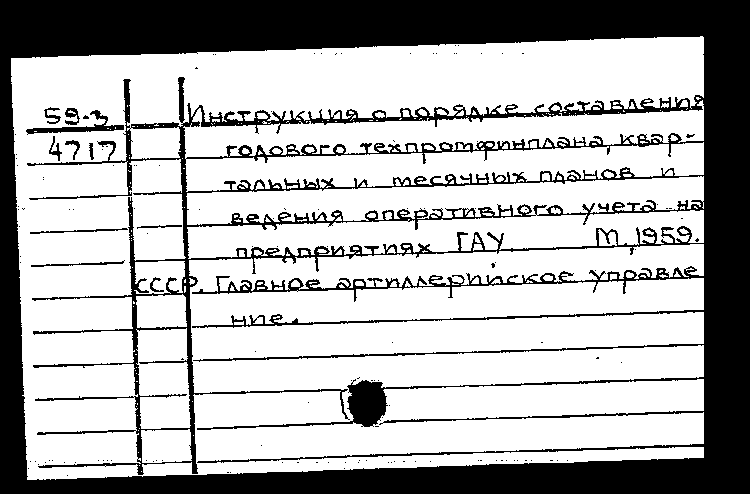 59-3 Инструкция о порядке составления
4717 годового техпромфинплана, квар-
тальных и месячных планов и
ведения оперативного учета на
предприятиях ГАУ. М., 1959.
СССР. Главное артиллерийское управле
ние.